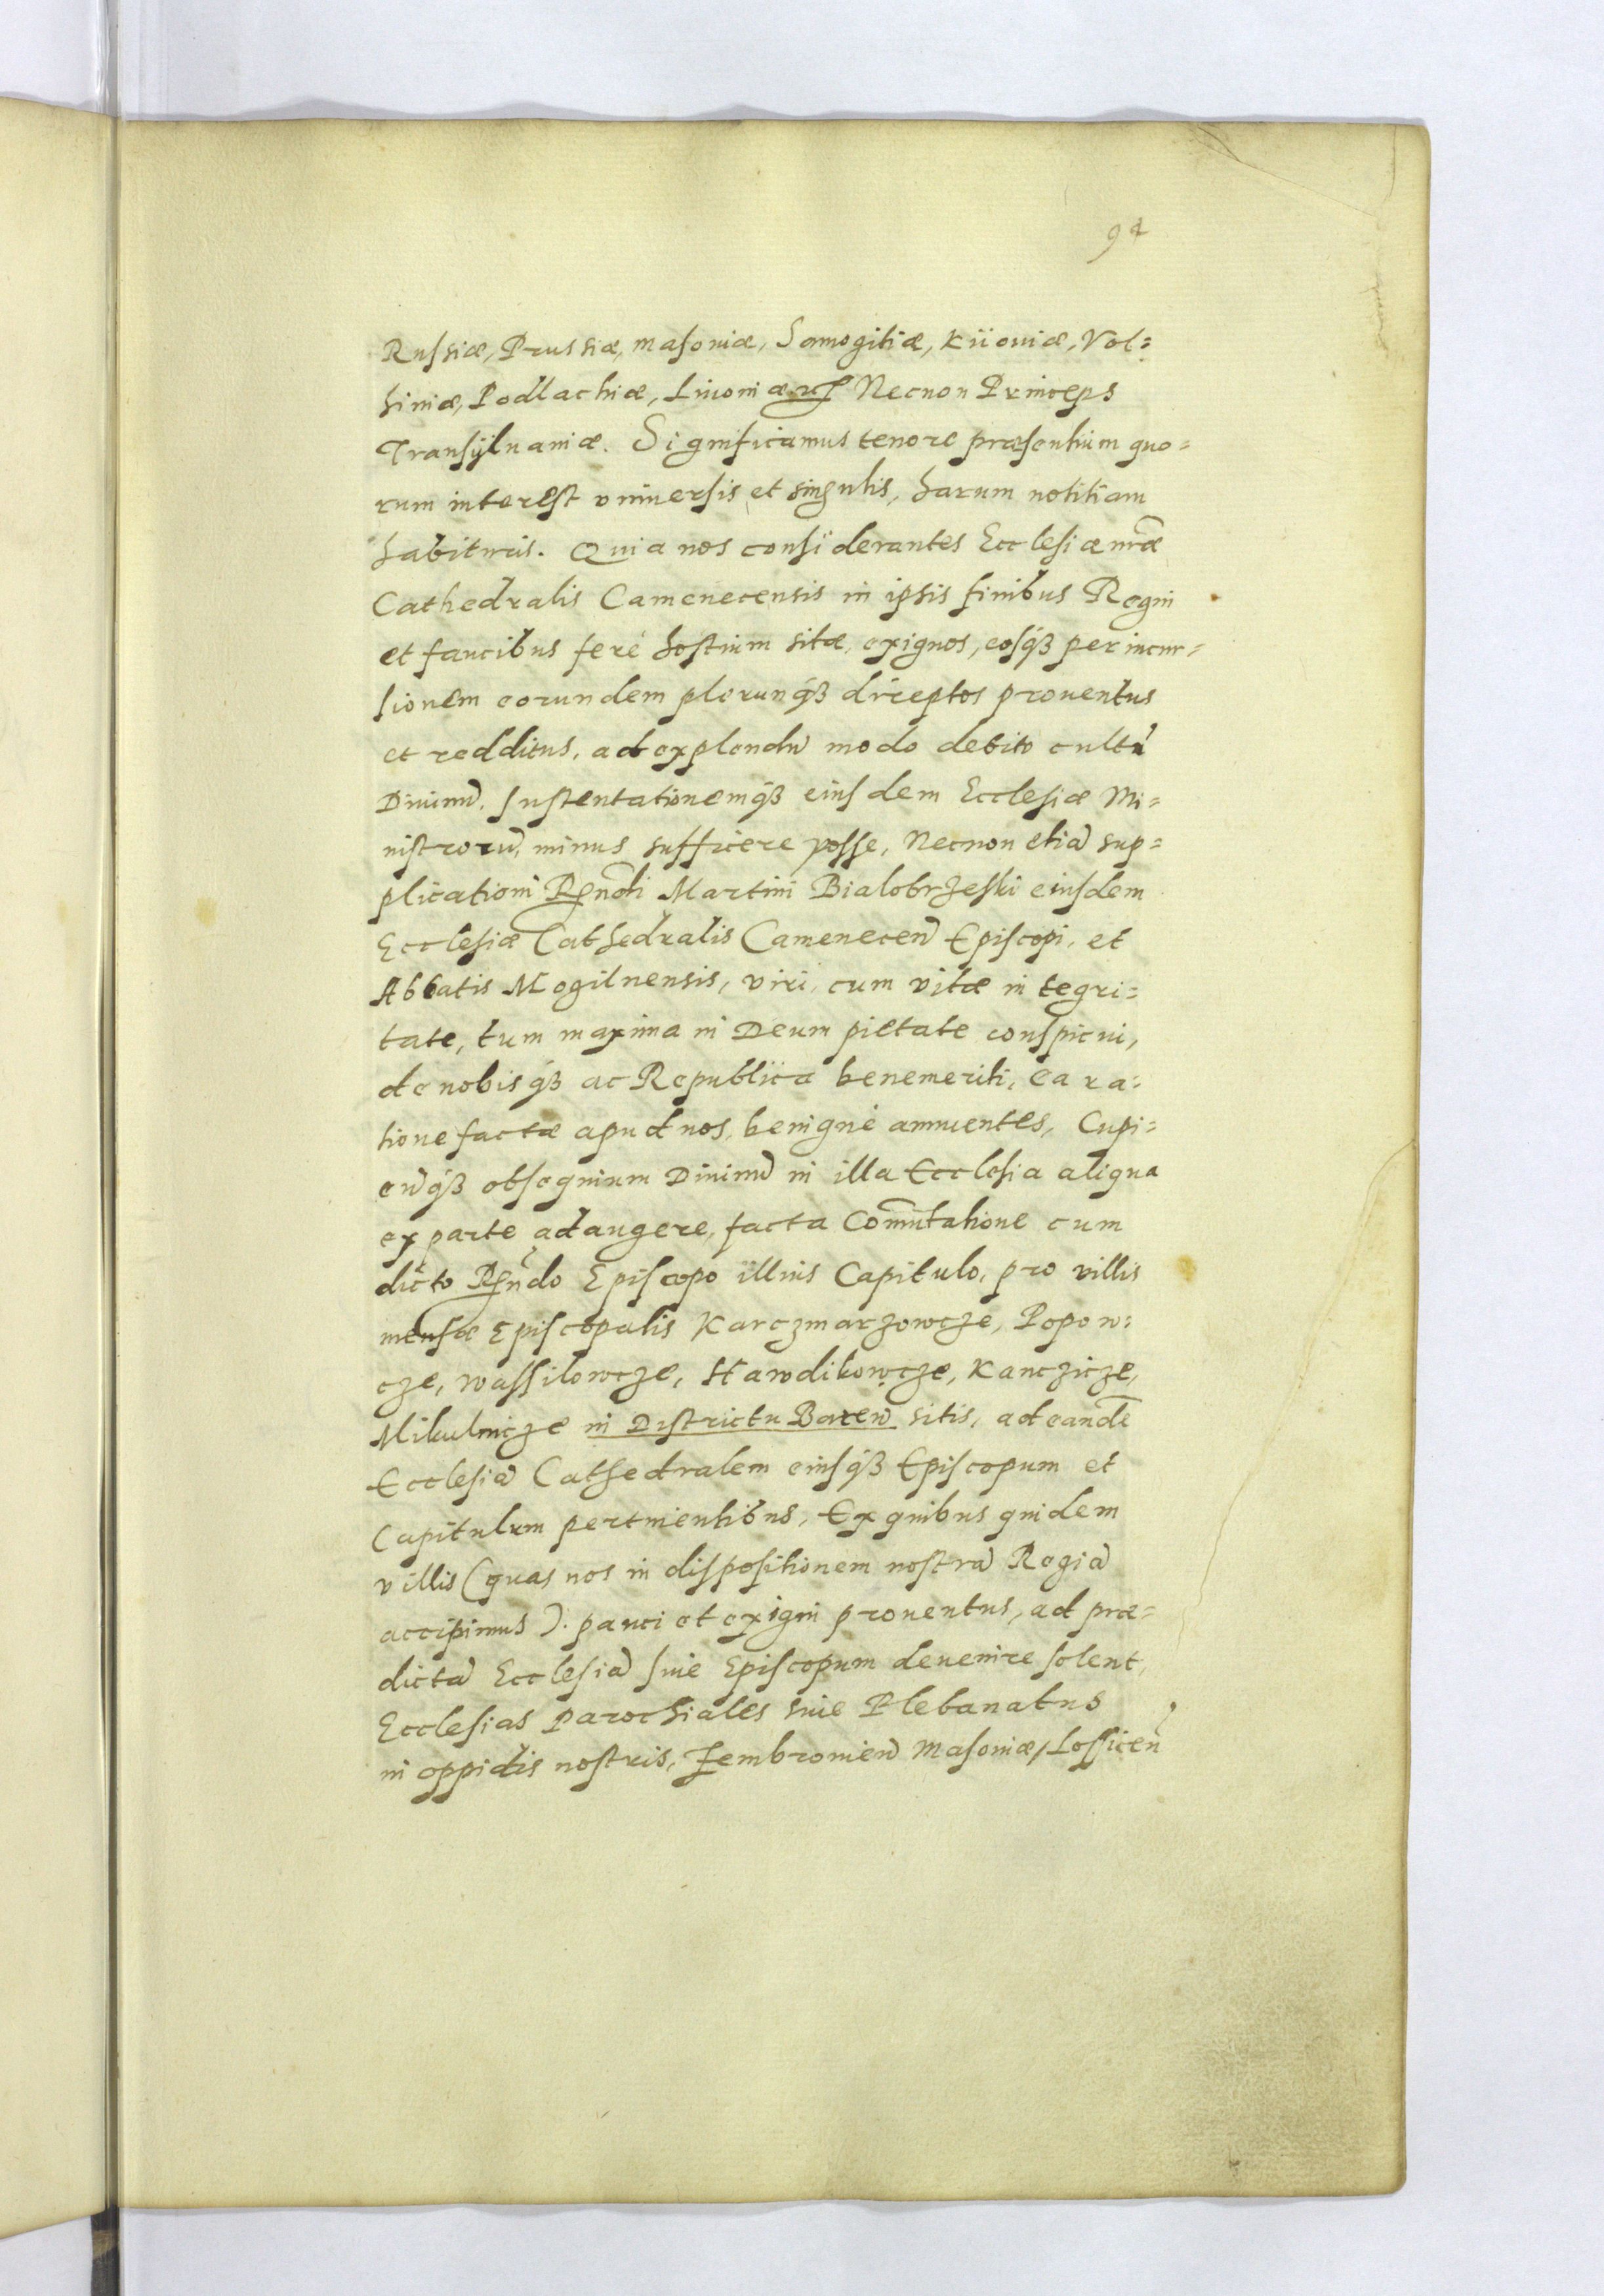 92
Russiæ, Prussiæ, Masoviæ, Samogitiæ, Kiioviæ, Vol=
hiniæ, Podlachiæ, Livoniæq₃ Necnon Princeps
Transÿlvaniæ. Significamus tenore præsentium quo=
rum interest vniversis et singulis, harum notitiam
habituris. Quia nos considerantes Ecclesiæ nr̃æ
Cathedralis Camenecensis in ipsis finibus Regni
et faucibus ferè hostium sitæ, exiguos, eosq́ꝫ per incur=
sionem eorundem plerunq́ꝫ direptos proventus
et redditus, ad explendũ modo debito cultũ
Divinũ, sustentationemq́ꝫ eiusdem Ecclesiæ Mi=
nistrorũ, minus sufficere posse, Necnon etiã sup=
plicationi Rn̄di Martini Bialobrzeski eiusdem
Ecclesiæ Cathedralis Camenecen̄ Episcopi, et
Abbatis Mogilnensis, viri, cum vitæ integri=
tate, tum maxima in Deum pietate conspicui,
de nobisq́ꝫ ac Republica benemeriti, ea ra=
tione factæ apud nos, benignè annuentes, Cupi=
en̄q́ꝫ obsequium Divinũ in illa Ecclesia aliqua
ex parte adaugere, facta Com̃utatione cum
dicto Rn̄do Episcopo illius Capitulo, pro villis
mensæ Episcopalis Karczmarzowcze, Popow=
cze, Wassilowcze, Hawdikowcze, Kanczicze,
Mikulnicze in Districtu Baren̄ sitis, ad eandē
Ecclesiã Cathedralem eiusq́ꝫ Episcopum et
Capitulum pertinentibus, Ex quibus quidem
villis (quas nos in dispositionem nostrã Regiã
accipimus). pauci et exigui proventus, ad præ=
dictã Ecclesiã sive Episcopum devenire solent,
Ecclesias Parochiales sive Plebanatus
in oppidis nostris, Zembrovien̄ Masoviæ, Lossicen̄